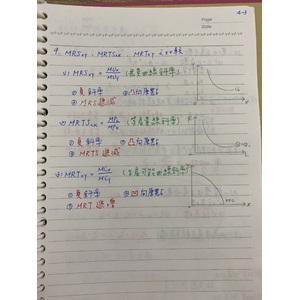 4-3
Page
Date
9. MRSxy、MRTSLK、MRTxy 之比較
(1) MRSxy = MUx/MUy (無異曲線斜率)
① 負斜率 ② 凸向原點
③ MRS遞減
(2) MRTSLK = MPL/MPK (等產量線斜率)
① 負斜率 ② 凸向原點
③ MRTS 遞減
(3) MRTxy = MCx/MCy (生產可能曲線斜率)
① 負斜率 ② 凹向原點
③ MRT 遞增
PPC
X